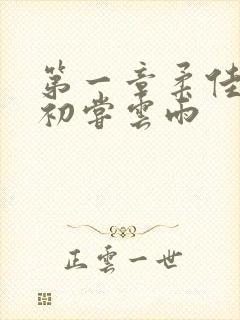 第一章柔佳
初尝雲雨
正雲一世